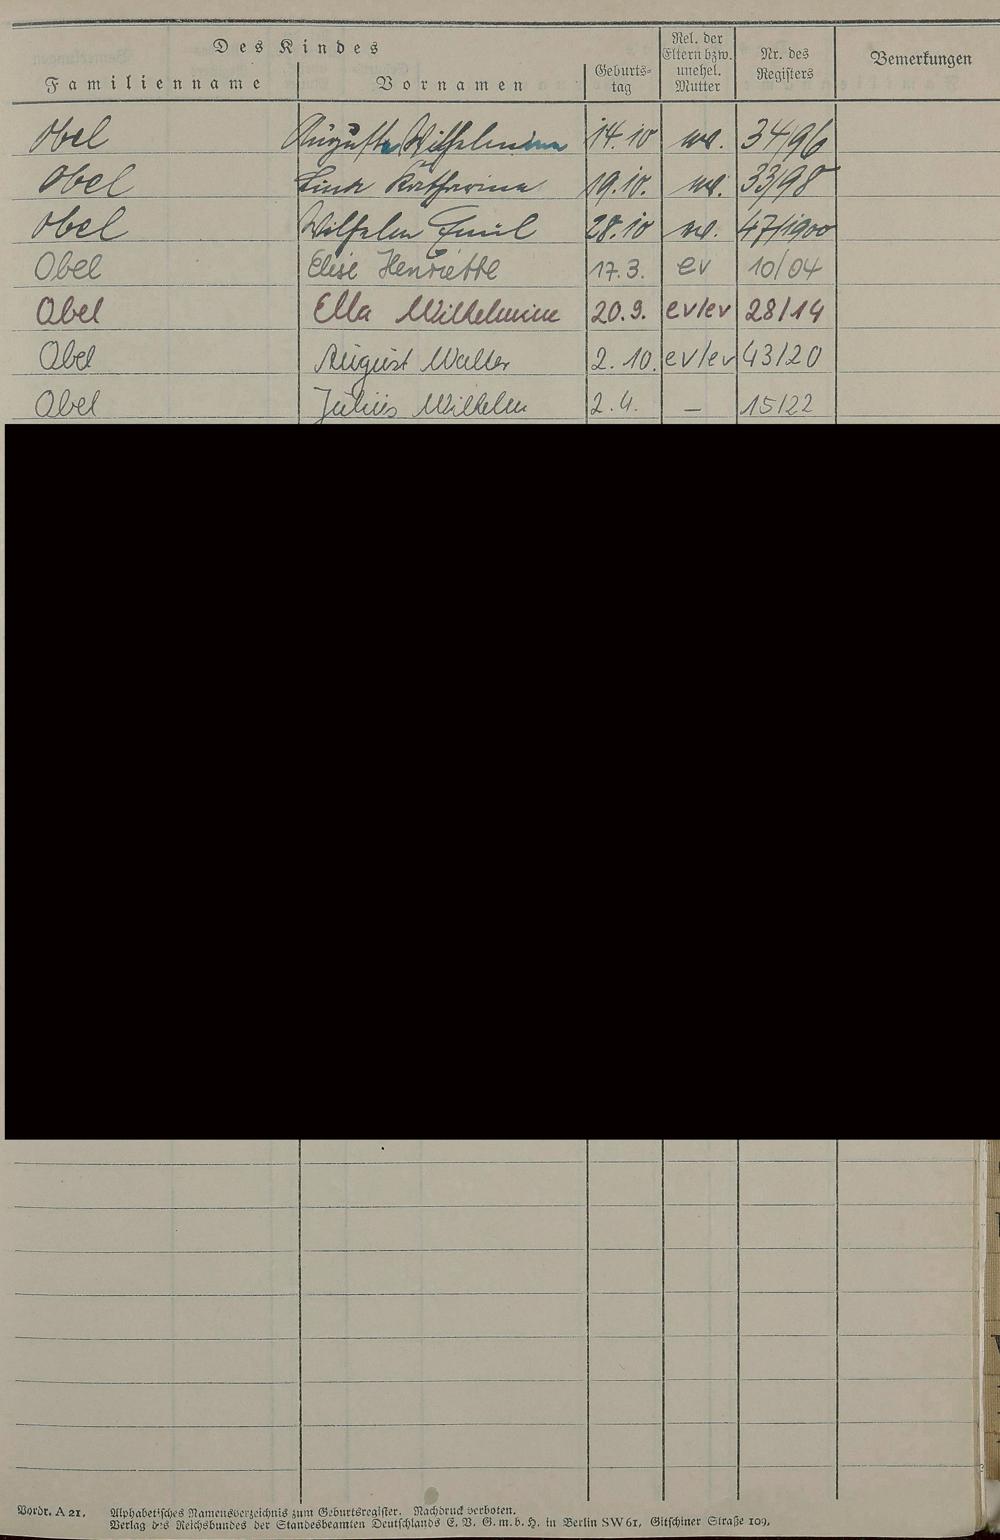 Des Kindes
Familienname Vornamen Geburts-tag Rel. der Eltern bzw. unehel. Mutter Nr. des Registers Bemerkungen
Obel Auguste Wilhelmine 14.10 ev. 34/96
Obel Lina Katharina 19.10. ev. 33/98
Obel Wilhelm Emil 28.10 ev. 47/1900
Obel Elise Henriette 17.3. ev 10/04
Obel Ella Wilhelmine 20.9. ev/ev 28/14
Obel August Walter 2.10. ev/ev 43/20
Obel Julius Wilhelm 2.4. — 15/22
Vordr. A 21. Alphabetisches Namensverzeichnis zum Geburtsregister. Nachdruck verboten.
Verlag des Reichsbundes der Standesbeamten Deutschlands E. V. G. m. b. H. in Berlin SW 61, Gitschiner Straße 109.